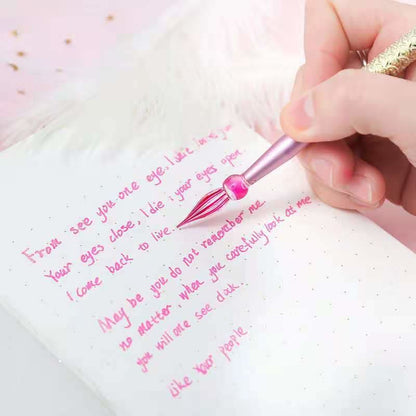 From see you one eye, I
Your eyes close, I die ; your eyes open,
I come back to live.
May be you do not remember me.
no matter when you carefully look at me
you will one see
like your people